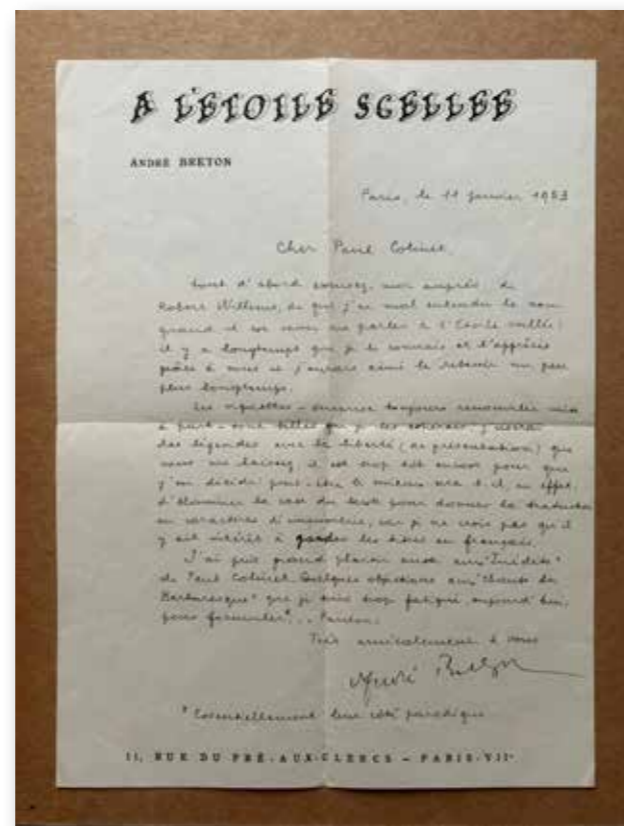 A L'ÉTOILE SCELLÉE
ANDRÉ BRETON
Paris, le 11 janvier 1953
Cher Paul Colinet,
tout d'abord excusez-moi auprès de
Robert Willems, de qui j'ai mal entendu le nom
quand il est venu me parler à l'Étoile scellée :
il y a longtemps que je le connais et l'apprécie
grâce à vous et j'aurais aimé le retenir un peu
plus longtemps.
Les vignettes – toujours
à part – sont telles que je les . J'userai
des légendes avec la liberté (de présentation) que
vous me laissez, il est trop tôt encore pour que
j'en décide : peut-être le mieux sera-t-il, en effet,
d'éliminer le reste du texte pour donner la traduction
en caractères d'imprimerie, car je ne crois pas qu'il
y ait intérêt à garder les titres en français.
J'ai pris grand plaisir aussi aux "Inédits"
de Paul Colinet. Quelques objections aux "Chants de
Barbaresque" que je suis trop fatigué, aujourd'hui,
pour formuler* . . Pardon.
Très amicalement à vous
André Breton
* Essentiellement leur côté parodique
11, RUE DU PRÉ-AUX-CLERCS – PARIS-VIIe